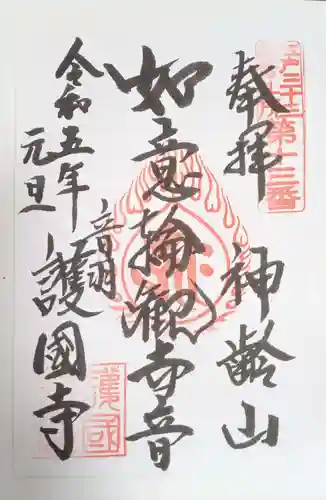 奉拝
江戸三十三ヶ所第十三番
神齢山
如意輪観世音
音羽
護國寺
令和五年
元旦
護國